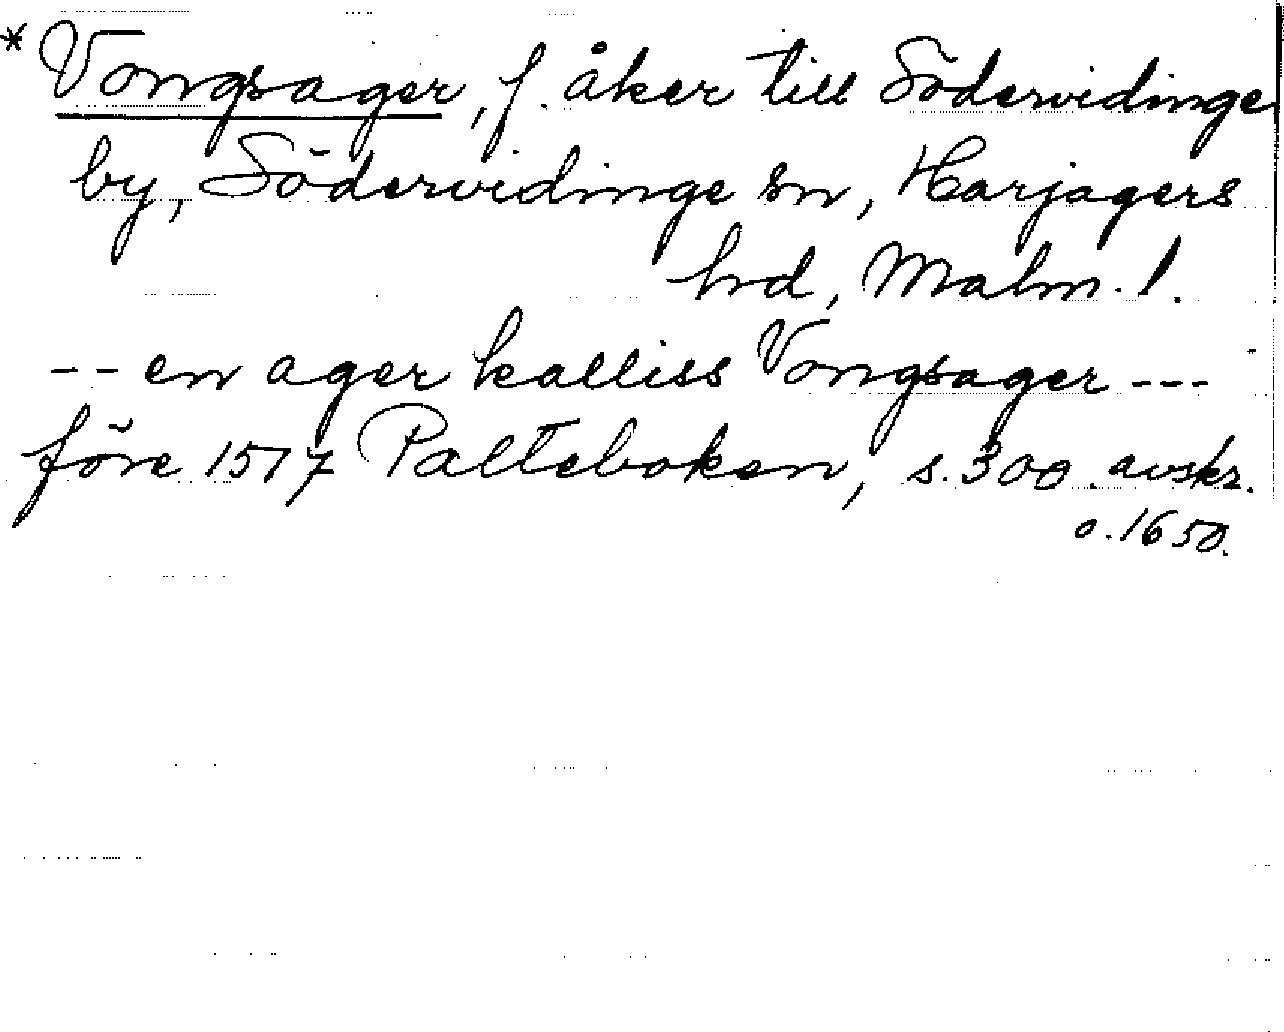 * Vongsager, f. åker till Södervidinge
by, Södervidinge sn, Harjagers
hrd, Malm. l.
-- en ager kalliss Vongsager ---
före 1517 Palteboken, s. 300. avskr.
o. 1650.